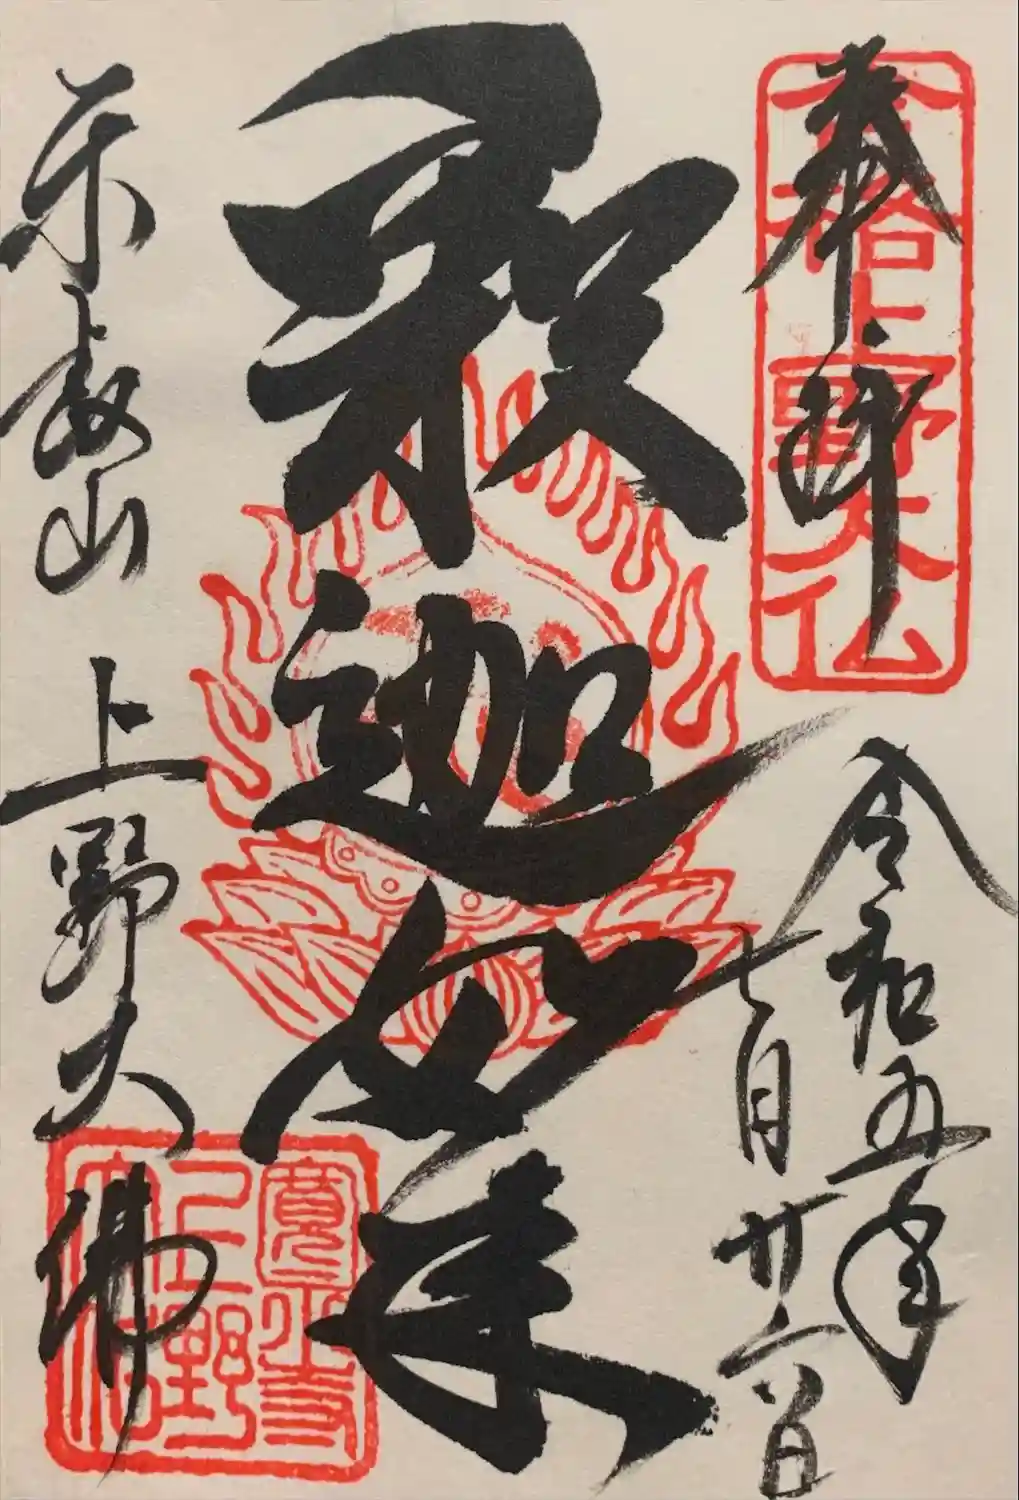 奉拝
令和五年
七月廿六日
釈迦如来
東叡山
上野大佛
上野大仏
寛永寺
上野
大仏